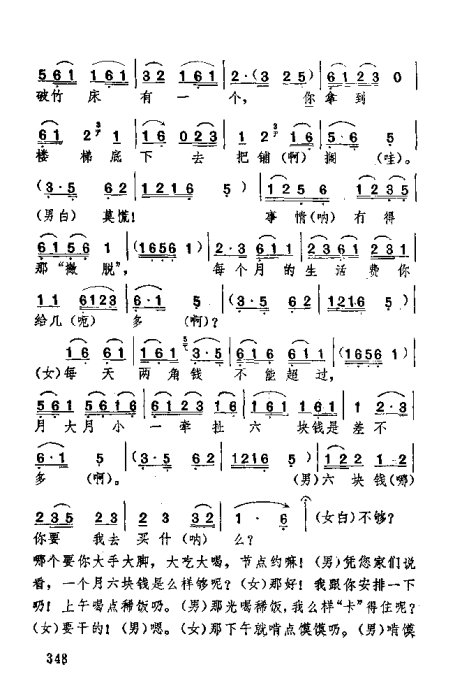 5 6 1 1 6 1 | 3 2 1 6 1 | 2 · (3 2 5) | 6 1 2 3 0 |
破竹 床 有 一 个, 你 拿 到
6 1 2 1 | 1 6 0 2 3 | 1 2 1 6 | 5 · 6 5 |
楼 梯 底 下 去 把 铺 (啊) 搁 (哇)。
(3 · 5 6 2 | 1 2 1 6 5) | 1 2 5 6 | 1 2 3 5 |
(男白) 莫慌! 事 情(呐) 冇 得
6 1 5 6 1 | (1656 1) | 2 · 3 6 1 1 | 2 3 6 1 2 3 1 |
那“撇 脱”, 每 个 月 的 生 活 费 你
1 1 6123 | 6 · 1 5 | (3 · 5 6 2 | 1216 5) |
给几(呃) 多 (啊)?
1 6 6 1 | 1 6 1 3 · 5 | 6 1 6 6 1 1 | (1656 1) |
(女)每 天 两 角 钱 不 能 超 过,
5 6 1 5 6 1 6 | 6 1 2 3 1 6 | 1 6 1 1 6 1 | 1 2 · 3 |
月 大 月 小 一 牵 扯 六 块钱是 差 不
6 · 1 5 | (3 · 5 6 2 | 1216 5) | 1 2 2 1 2 |
多 (啊)。 (男)六 块 钱(哪)
2 3 5 2 3 | 2 3 3 2 | 1 · 6 | (女白)不够?
你 要 我 去 买 什(呐) 么?
哪个要你大手大脚, 大吃大喝, 节点约嘛! (男)凭您家们说
看, 一个月六块钱是么样够呢? (女)那好! 我跟你安排一下
叻! 上午喝点稀饭叻。(男)那光喝稀饭,我么样“卡”得住呢?
(女)要干的! (男)嗯。(女)那下午就啃点馍馍叻。(男)啃馍
348